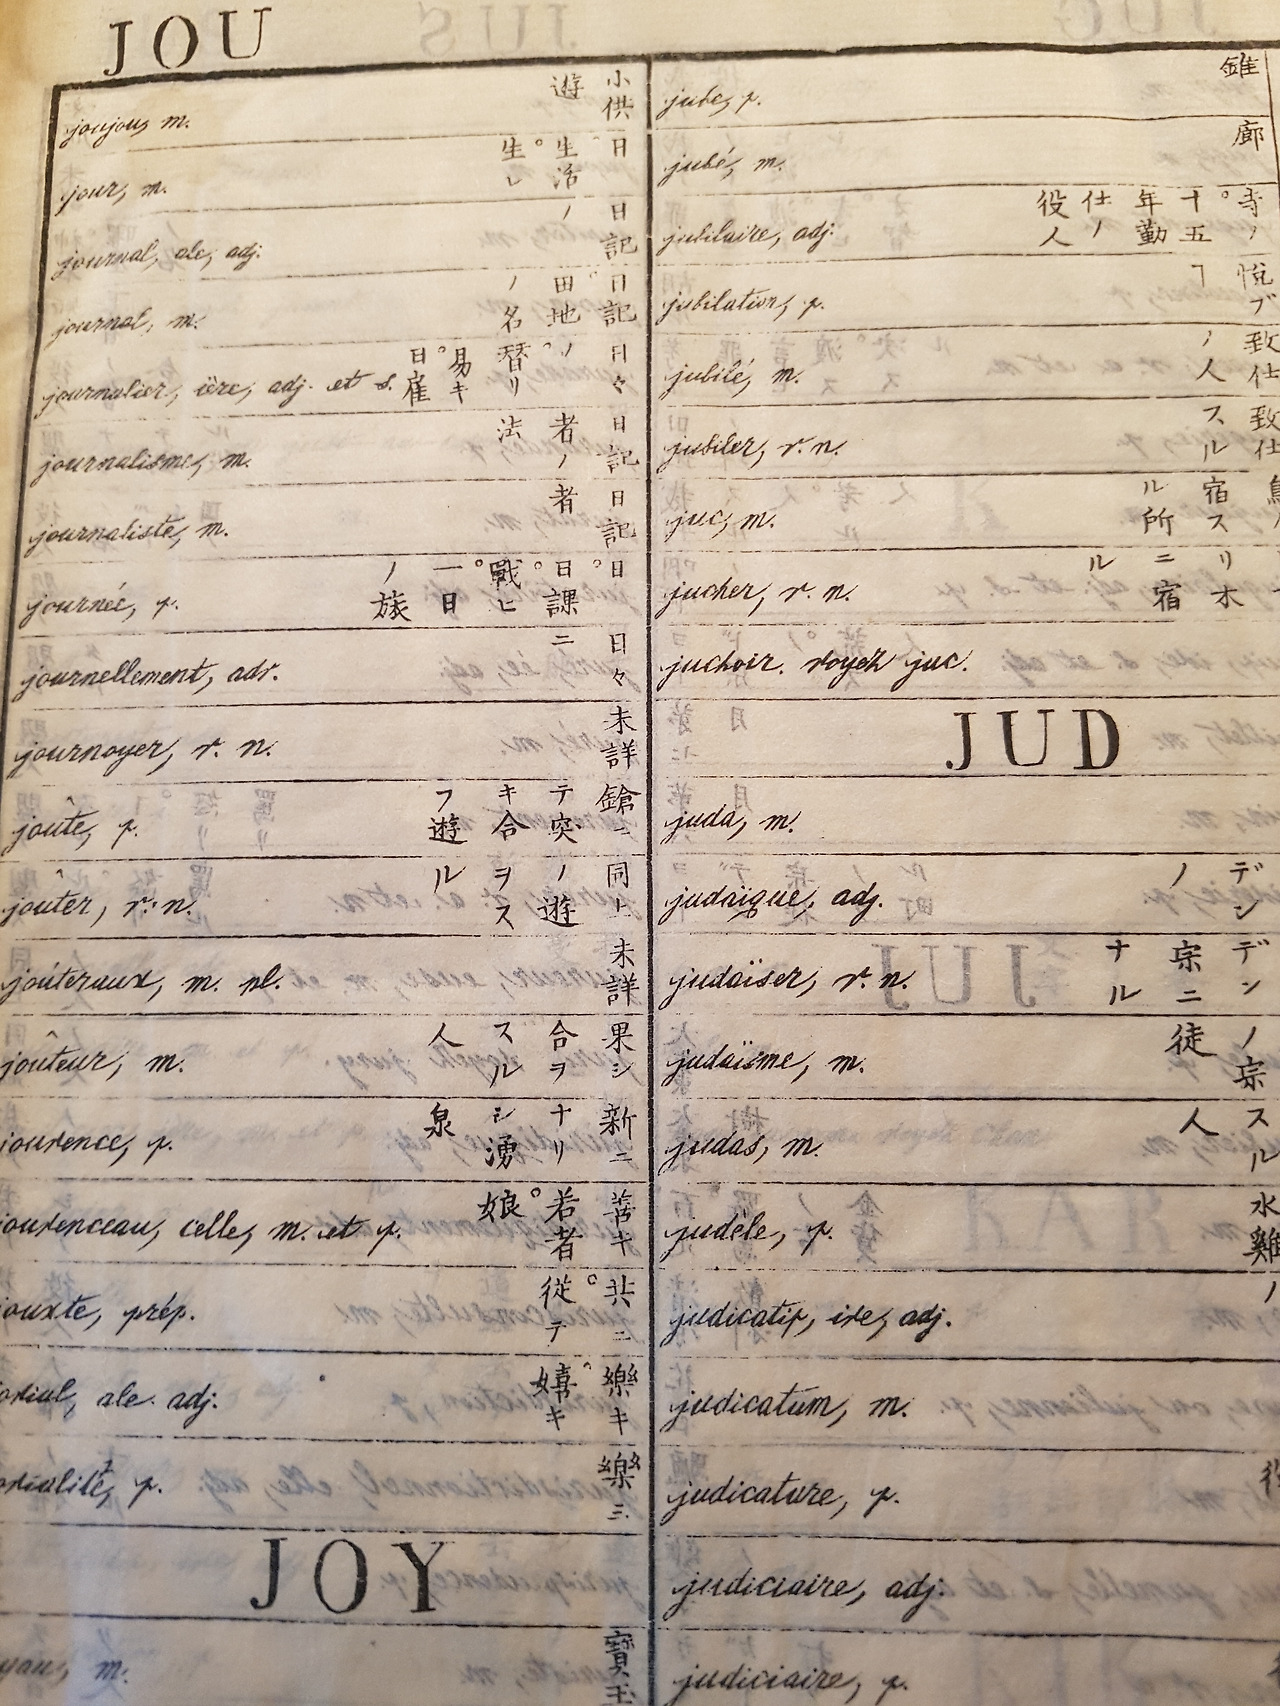 JOU
joujou, m. 小供遊
jour, m. 日。生活。生レ
journal, ale, adj. 日記ノ
journal, m. 日記。田地ノ名
journalier, ière, adj. et s. 日々ノ。替リ易キ。日雇
journalisme, m. 日記者ノ法
journaliste, m. 日記者
journée, f. 日。日課。戰ヒ。一日ノ旅
journellement, adv. 日々ニ
journoyer, v. n. 未詳
joûte, f. 鎗ニテ突キ合フ遊
joûter, v. n. 同上ノ遊ヲスル
joûteraux, m. pl. 未詳
joûteur, m. 果シ合ヲスル人
jouvence, f. 新ニナリシ湧泉
jouvenceau, celle, m. et f. 善キ若者。娘
jouxte, prép. 共ニ。従テ
ovial, ale. adj. 樂キ。嬉キ
ovialité, f. 樂ミ
JOY
yau, m. 寶玉
jube, f. 錐
jubé, m. 廊
jubilaire, adj. 寺ノ。十五年勤仕ノ役人
jubilation, f. 悦ブヿ
jubilé, m. 致仕ノ人
jubiler, v. n. 致仕スル
juc, m. 鳥ノ宿スル所
jucher, v. n. リ木ニ宿ル
juchoir. voyéz juc.
JUD
juda, m.
judaïque, adj. デンノ
judaïser, v. n. デン宗ニナル
judaïsme, m. ノ宗徒
judas, m. スル人
judèle, f. 水雞
judicatif, ive, adj. ノ
judicatum, m.
judicature, f.
judiciaire, adj.
judiciaire, f.